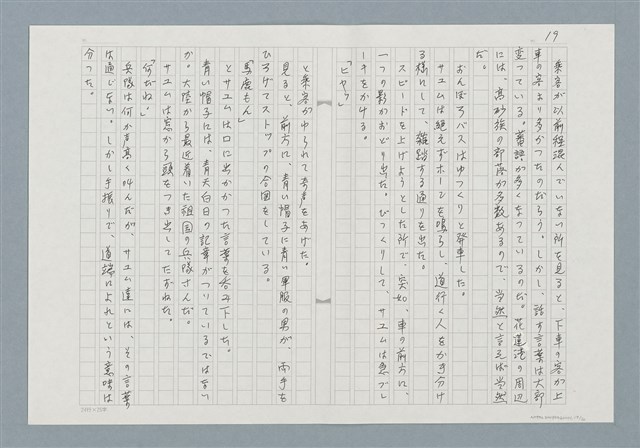 19
乗客が以前程混んでいない所を見ると、下車の客が上
車の客より多かつたのだろう。しかし、話す言葉は大部
変つている。蕃語が多くなつているのだ。花蓮港の周辺
には、高砂族の部落が多数あるので、当然と言えば当然
だ。
おんぼろバスはゆつくりと発車した。
サユムは絶えずホーンを鳴らし、道行く人をかき分け
る様にして、雑踏する通りを出た。
スピードを上げようとした所で、突如、車の前方に、
一つの影がおどり出た。びつくりして、サユムは急ブレ
ーキをかける。
「ヒヤッ」
と乗客がゆられて奇声をあげた。
見ると、前方に、青い帽子に青い軍服の男が、両手を
ひろげてストップの合図をしている。
「馬鹿もん」
とサユムは口に出かかつた言葉を呑み下した。
青い帽子には、青天白日の記章がついているではない
か。大陸から最近着いた祖国の兵隊さんだ。
サユムは窓から頭をつき出してたずねた。
「何だね」
兵隊は何か声高く叫んだが、サユム達には、その言葉
は通じない。しかし手振りで、道端によれという意味は
分つた。